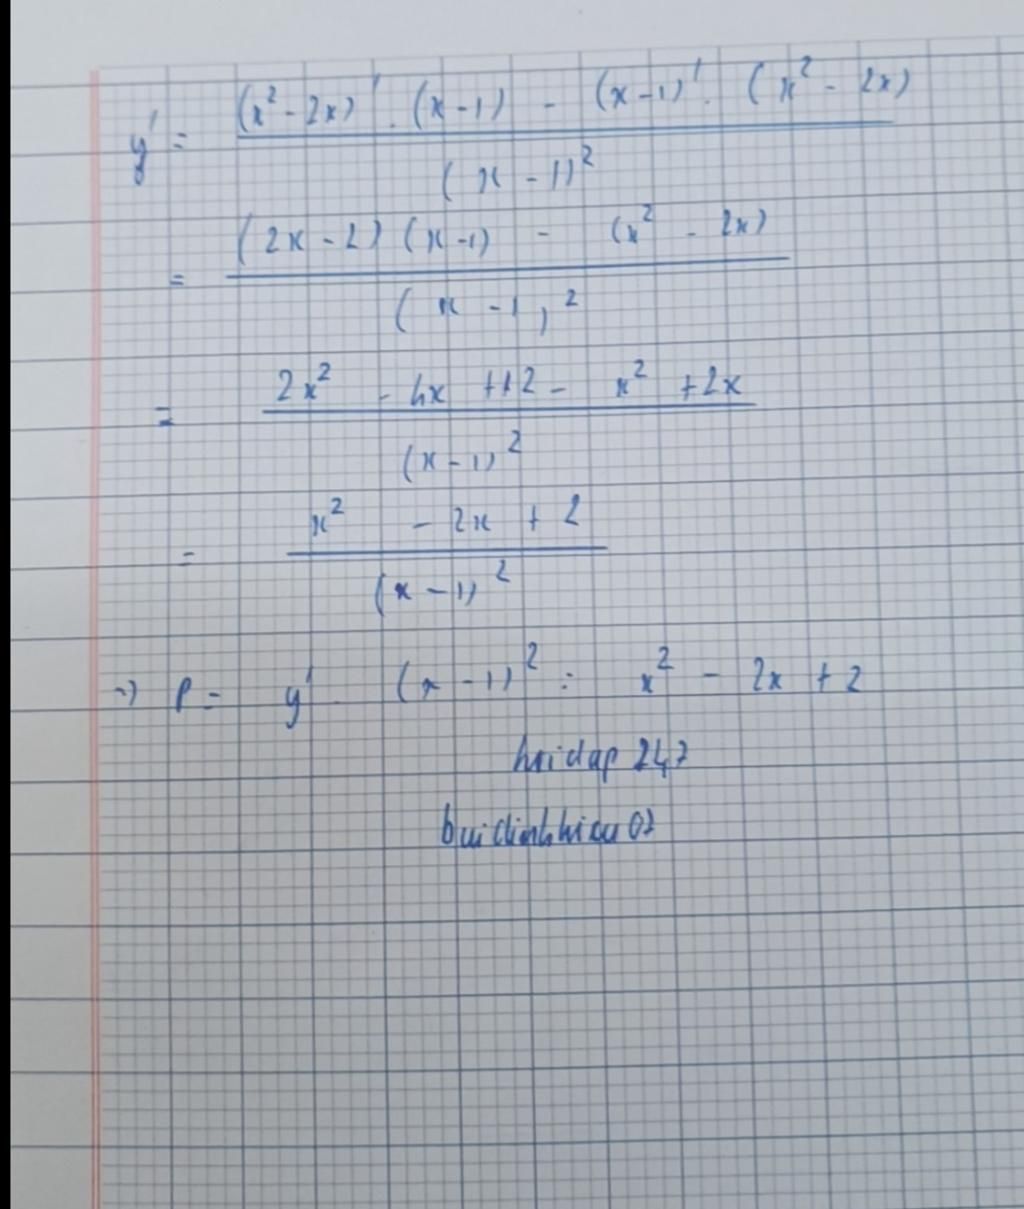 y' = (x² - 2x)' . (x - 1) - (x - 1)' . (x² - 2x)
(x - 1)²
= (2x - 2) (x - 1) - (x² - 2x)
(x - 1)²
= 2x² - 4x ++2 - x² + 2x
(x - 1)²
= x² - 2x + 2
(x - 1)²
=> P = y' . (x - 1)² = x² - 2x + 2
hoidap 247
buidinhhieu02